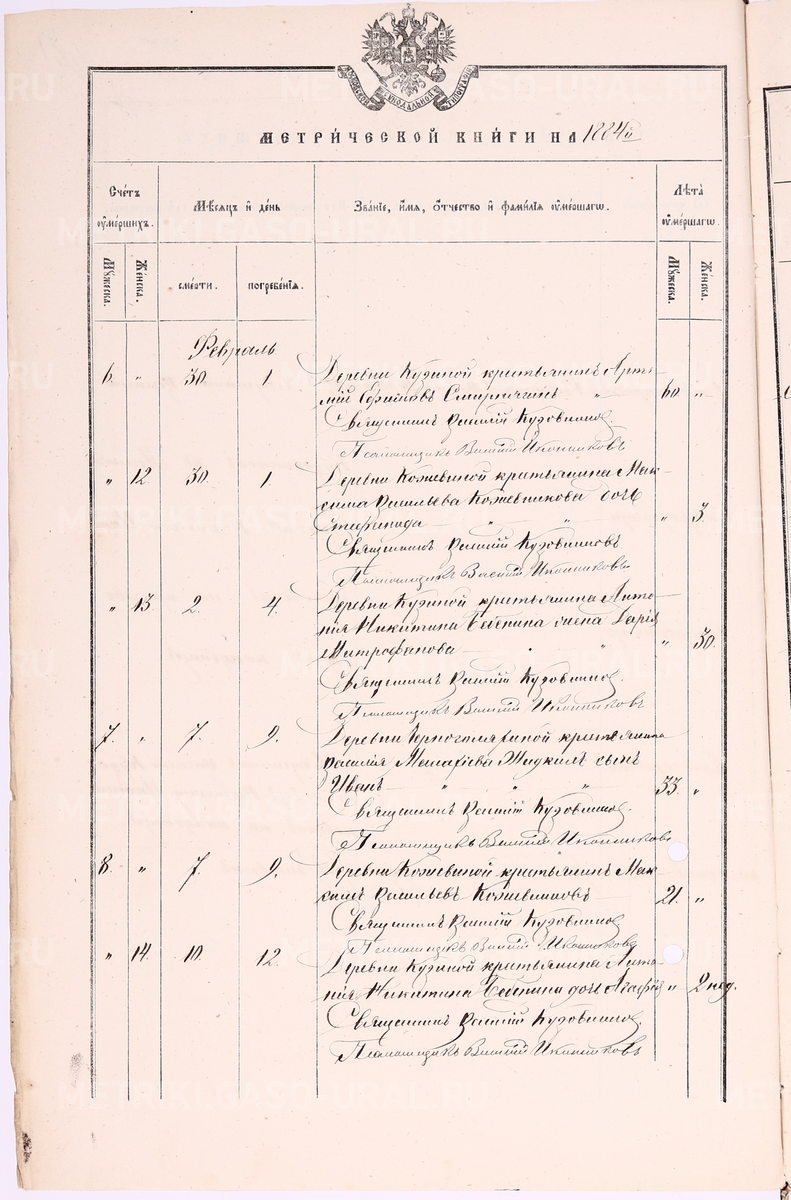 МЕТРИ́ЧЕСКОЙ КНИ́ГИ НА 1884й
Сче́тъ ᲂу҆ме́ршихъ.
Мѣ́сяцъ и҆ де́нь
Зва́нїе, и҆́мя, ѻ҆́тчество и҆ фами́лїя ᲂу҆ме́ршагѡ.
Лѣ́та ᲂу҆ме́ршагѡ.
Мꙋ́жеска.
Же́нска.
сме́рти.
погребе́нїя.
Мꙋ́жеска.
Же́нска.
Февраль
6. " 30. 1. Деревни Кузиной крестьянинъ Арте-
мій Ефимовъ " 60. "
Священникъ Василій Кузовниковъ
Псаломщикъ Василій Иконниковъ
" 12 30. 1. Деревни Кожевиной крестьянина Мак-
сима Васильева Кожевникова дочь
Стефанида " " " 3.
Священникъ Василій Кузовниковъ
Псаломщикъ Василій Иконниковъ
" 13 2. 4. Деревни Кузиной крестьянина Анто-
нія Никитина жена Дарія
Митрофанова " " " 30.
Священникъ Василій Кузовниковъ
Псаломщикъ Василій Иконниковъ
7. " 7. 9. Деревни крестьянина
Василія сынъ
Иванъ " " " 33. "
Священникъ Василій Кузовниковъ
Псаломщикъ Василій Иконниковъ
8. " 7. 9. Деревни Кожевиной крестьянинъ Мак-
симъ Васильевъ Кожевниковъ 21. "
Священникъ Василій Кузовниковъ
Псаломщикъ Василій Иконниковъ
" 14. 10. 12. Деревни Кузиной крестьянина Анто-
нія Никитина дочь Агафія " 2 нед.
Священникъ Василій Кузовниковъ
Псаломщикъ Василій Иконниковъ
METRIKI.GASO-URAL.RU